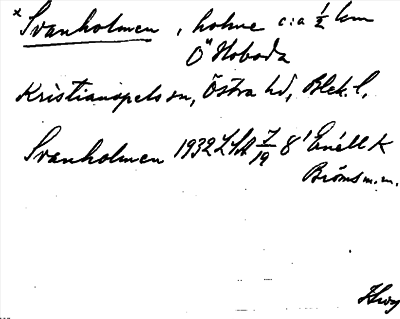 x Svanholmen, holme c:a 1/2 km
Ö Hoboda
Kristianopels sn, Östra hd, Blek. l.
Svanholmen 1932 LSA 7/19 8' Enéll K
Bröms m.m.